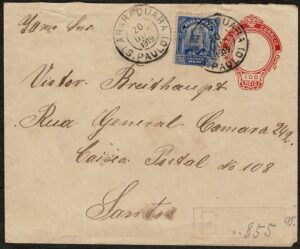 Illmo Snr.
ARARAQUARA
20
1919
(S. PAULO)
ARARAQUARA
(S. PAULO)
100
REIS
Victor Breithaupt
Rua General Camara 242
Caixa Postal do 108
Santos
R
855